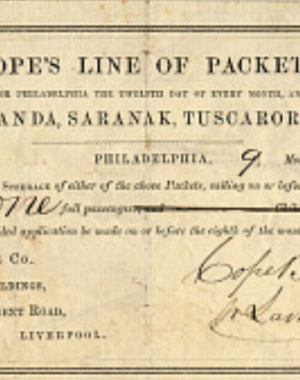 OPE'S LINE OF PACKET
OR PHILADELPHIA THE TWELFTH DAY OF EVERY MONTH, AN
ANDA, SARANAK, TUSCAROR
PHILADELPHIA, 9. Mo
STEERAGE of either of the above Packets, sailing on or befo
one full passenger, and
ded application be made on or before the eighth of the mon
& Co.
LDINGS,
ENT ROAD,
LIVERPOOL.
Cope